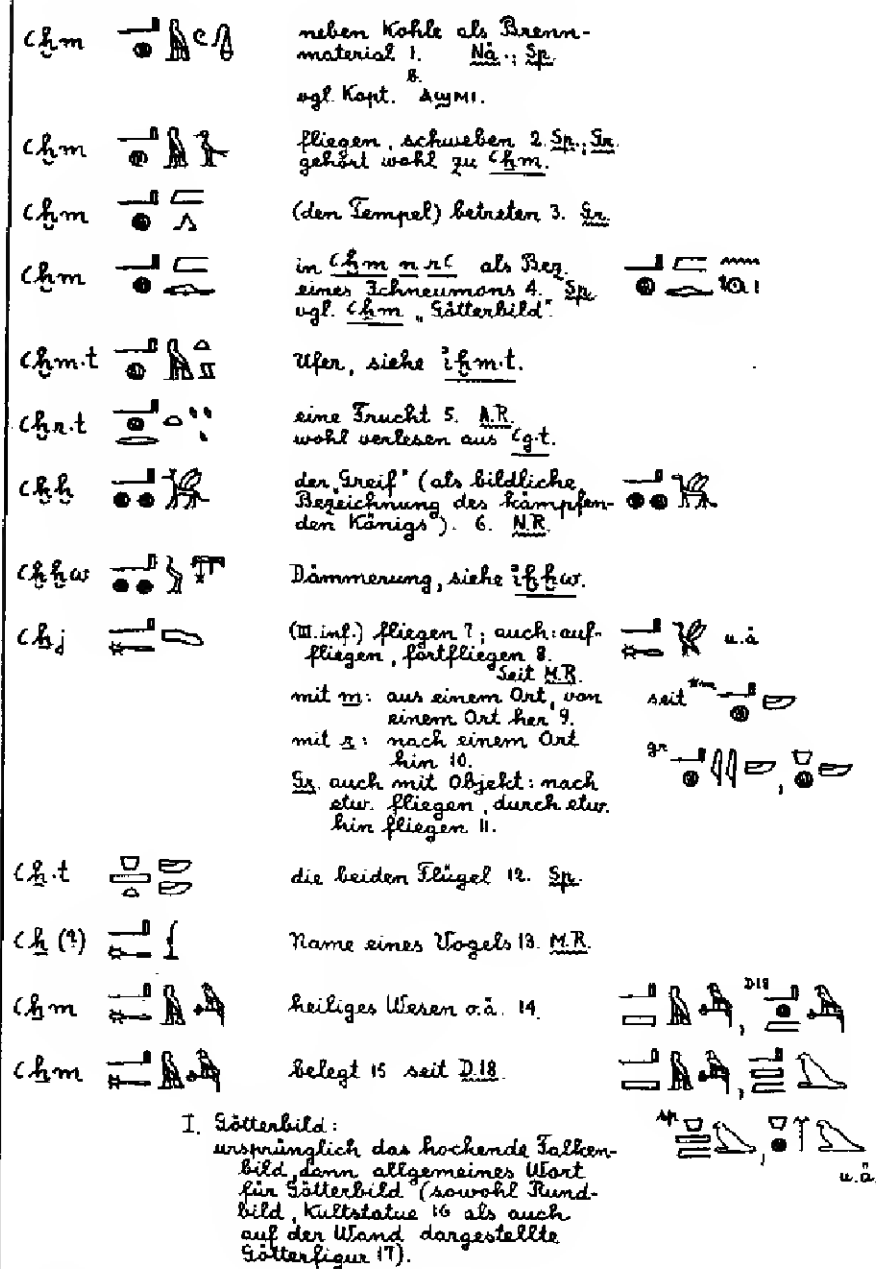 ꜥḫm neben Kohle als Brenn-
material 1. Nä.; Sp.
B.
vgl. Kopt. ⲁϣⲙⲓ.
ꜥḫm fliegen, schweben 2. Sp.; Gr.
gehört wohl zu ꜥẖm.
ꜥḫm (den Tempel) betreten 3. Gr.
ꜥḫm in ꜥḫm n rꜥ als Bez.
eines Ichneumons 4. Sp.
vgl. ꜥẖm „Götterbild".
ꜥḫm.t Ufer, siehe ỉḫm.t.
ꜥḫr.t eine Frucht 5. A.R.
wohl verlesen aus ꜥg.t.
ꜥḫḫ der „Greif" (als bildliche
Bezeichnung des kämpfen-
den Königs). 6. N.R.
ꜥḫḫw Dämmerung, siehe ỉḫḫw.
ꜥẖj (III.inf.) fliegen 7; auch: auf- u.ä
fliegen, fortfliegen 8.
Seit M.R.
mit m: aus einem Ort, von seit
einem Ort her 9.
mit r: nach einem Ort gr
hin 10.
Gr. auch mit Objekt: nach
etw. fliegen, durch etw.
hin fliegen 11.
ꜥẖ.t die beiden Flügel 12. Sp.
ꜥẖ (?) Name eines Vogels 13. M.R.
ꜥẖm heiliges Wesen o.ä. 14. D.18
ꜥẖm belegt 15 seit D.18.
I. Götterbild: sp
ursprünglich das hockende Falken-
bild, dann allgemeines Wort u.ä.
für Götterbild (sowohl Rund-
bild, Kultstatue 16 als auch
auf der Wand dargestellte
Götterfigur 17).